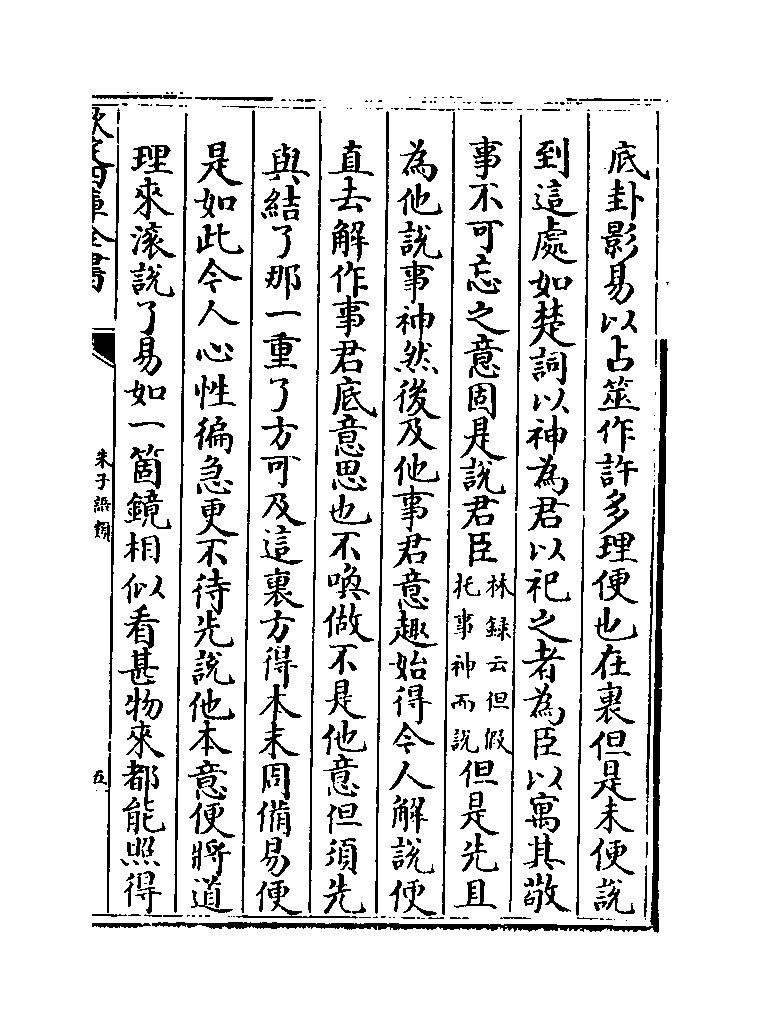 底卦影易以占筮作許多理便也在裏但是未便說
到這處如楚詞以神為君以祀之者為臣以寓其敬
事不可忘之意固是說君臣林録云但假托事神而說但是先且
為他說事神然後及他事君意趣始得今人解說便
直去解作事君底意思也不喚做不是他意但須先
與結了那一重了方可及這裏方得本末周備易便
是如此今人心性徧急更不待先說他本意便將道
理來滚說了易如一箇鏡相似看甚物來都能照得
欽定四庫全書
朱子語類
五